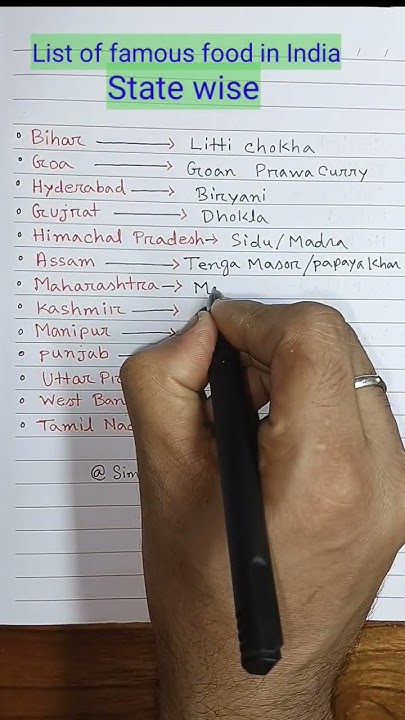 List of famous food in India
State wise
• Bihar → Litti chokha
• Goa → Goan Prawa Curry
• Hyderabad → Biryani
• Gujrat → Dhokla
• Himachal Pradesh → Sidu/Madra
• Assam → Tenga Masor/papaya Khar
• Maharashtra →
• Kashmir →
• Manipur →
• punjab
• Uttar
• West
• Tamil
@